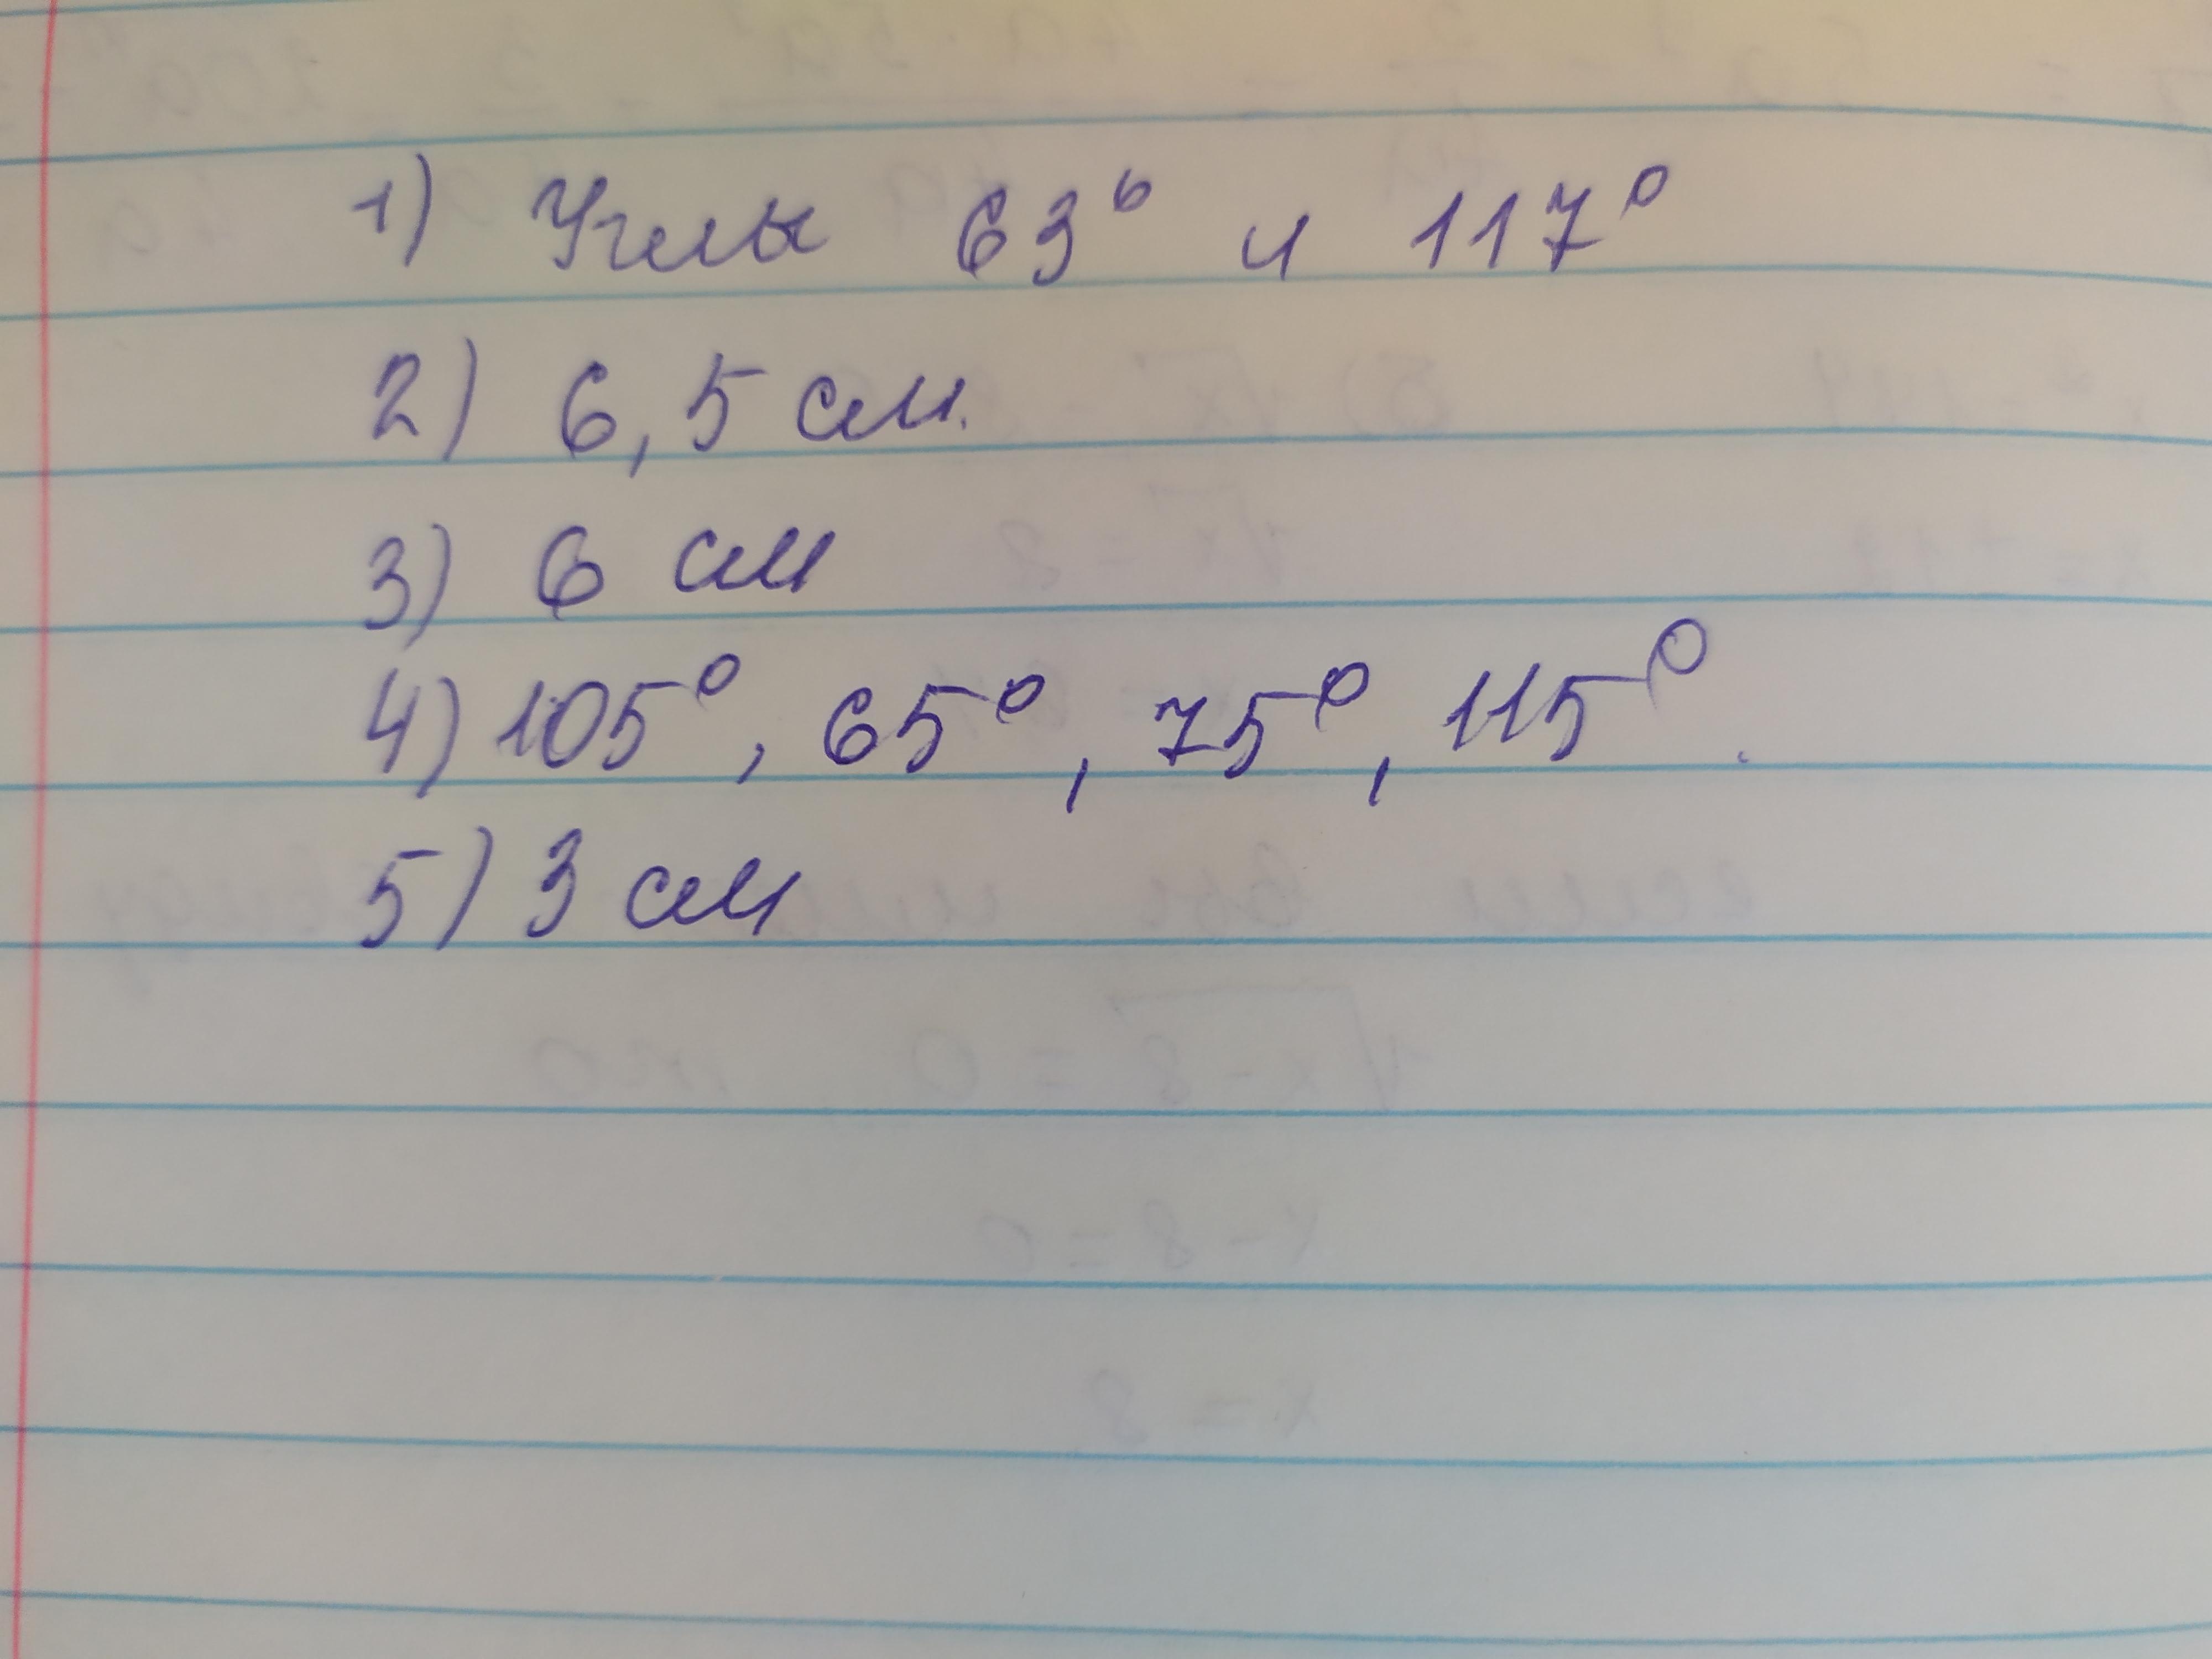 1) Углы 63° и 117°
2) 6,5 см.
3) 6 см
4) 105°, 65°, 75°, 115°.
5) 3 см